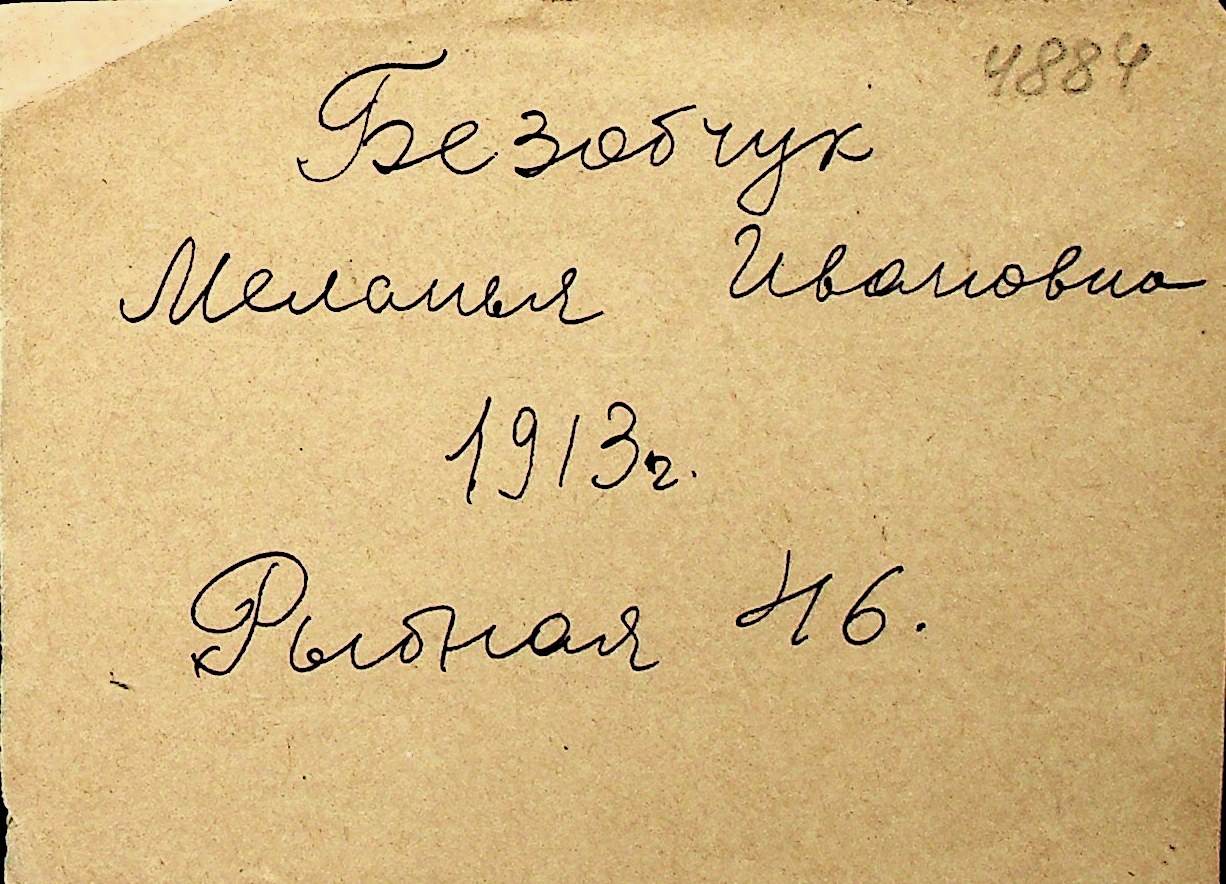 4884
Безобчук
Меланья Ивановна
1913г.
Рыбная 46.